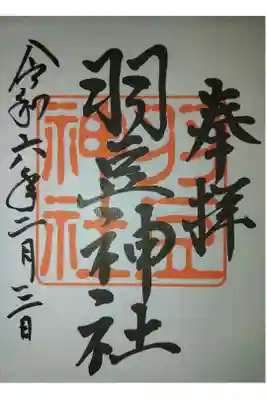 奉拝
羽豆神社
令和六年二月三日
羽豆
神社